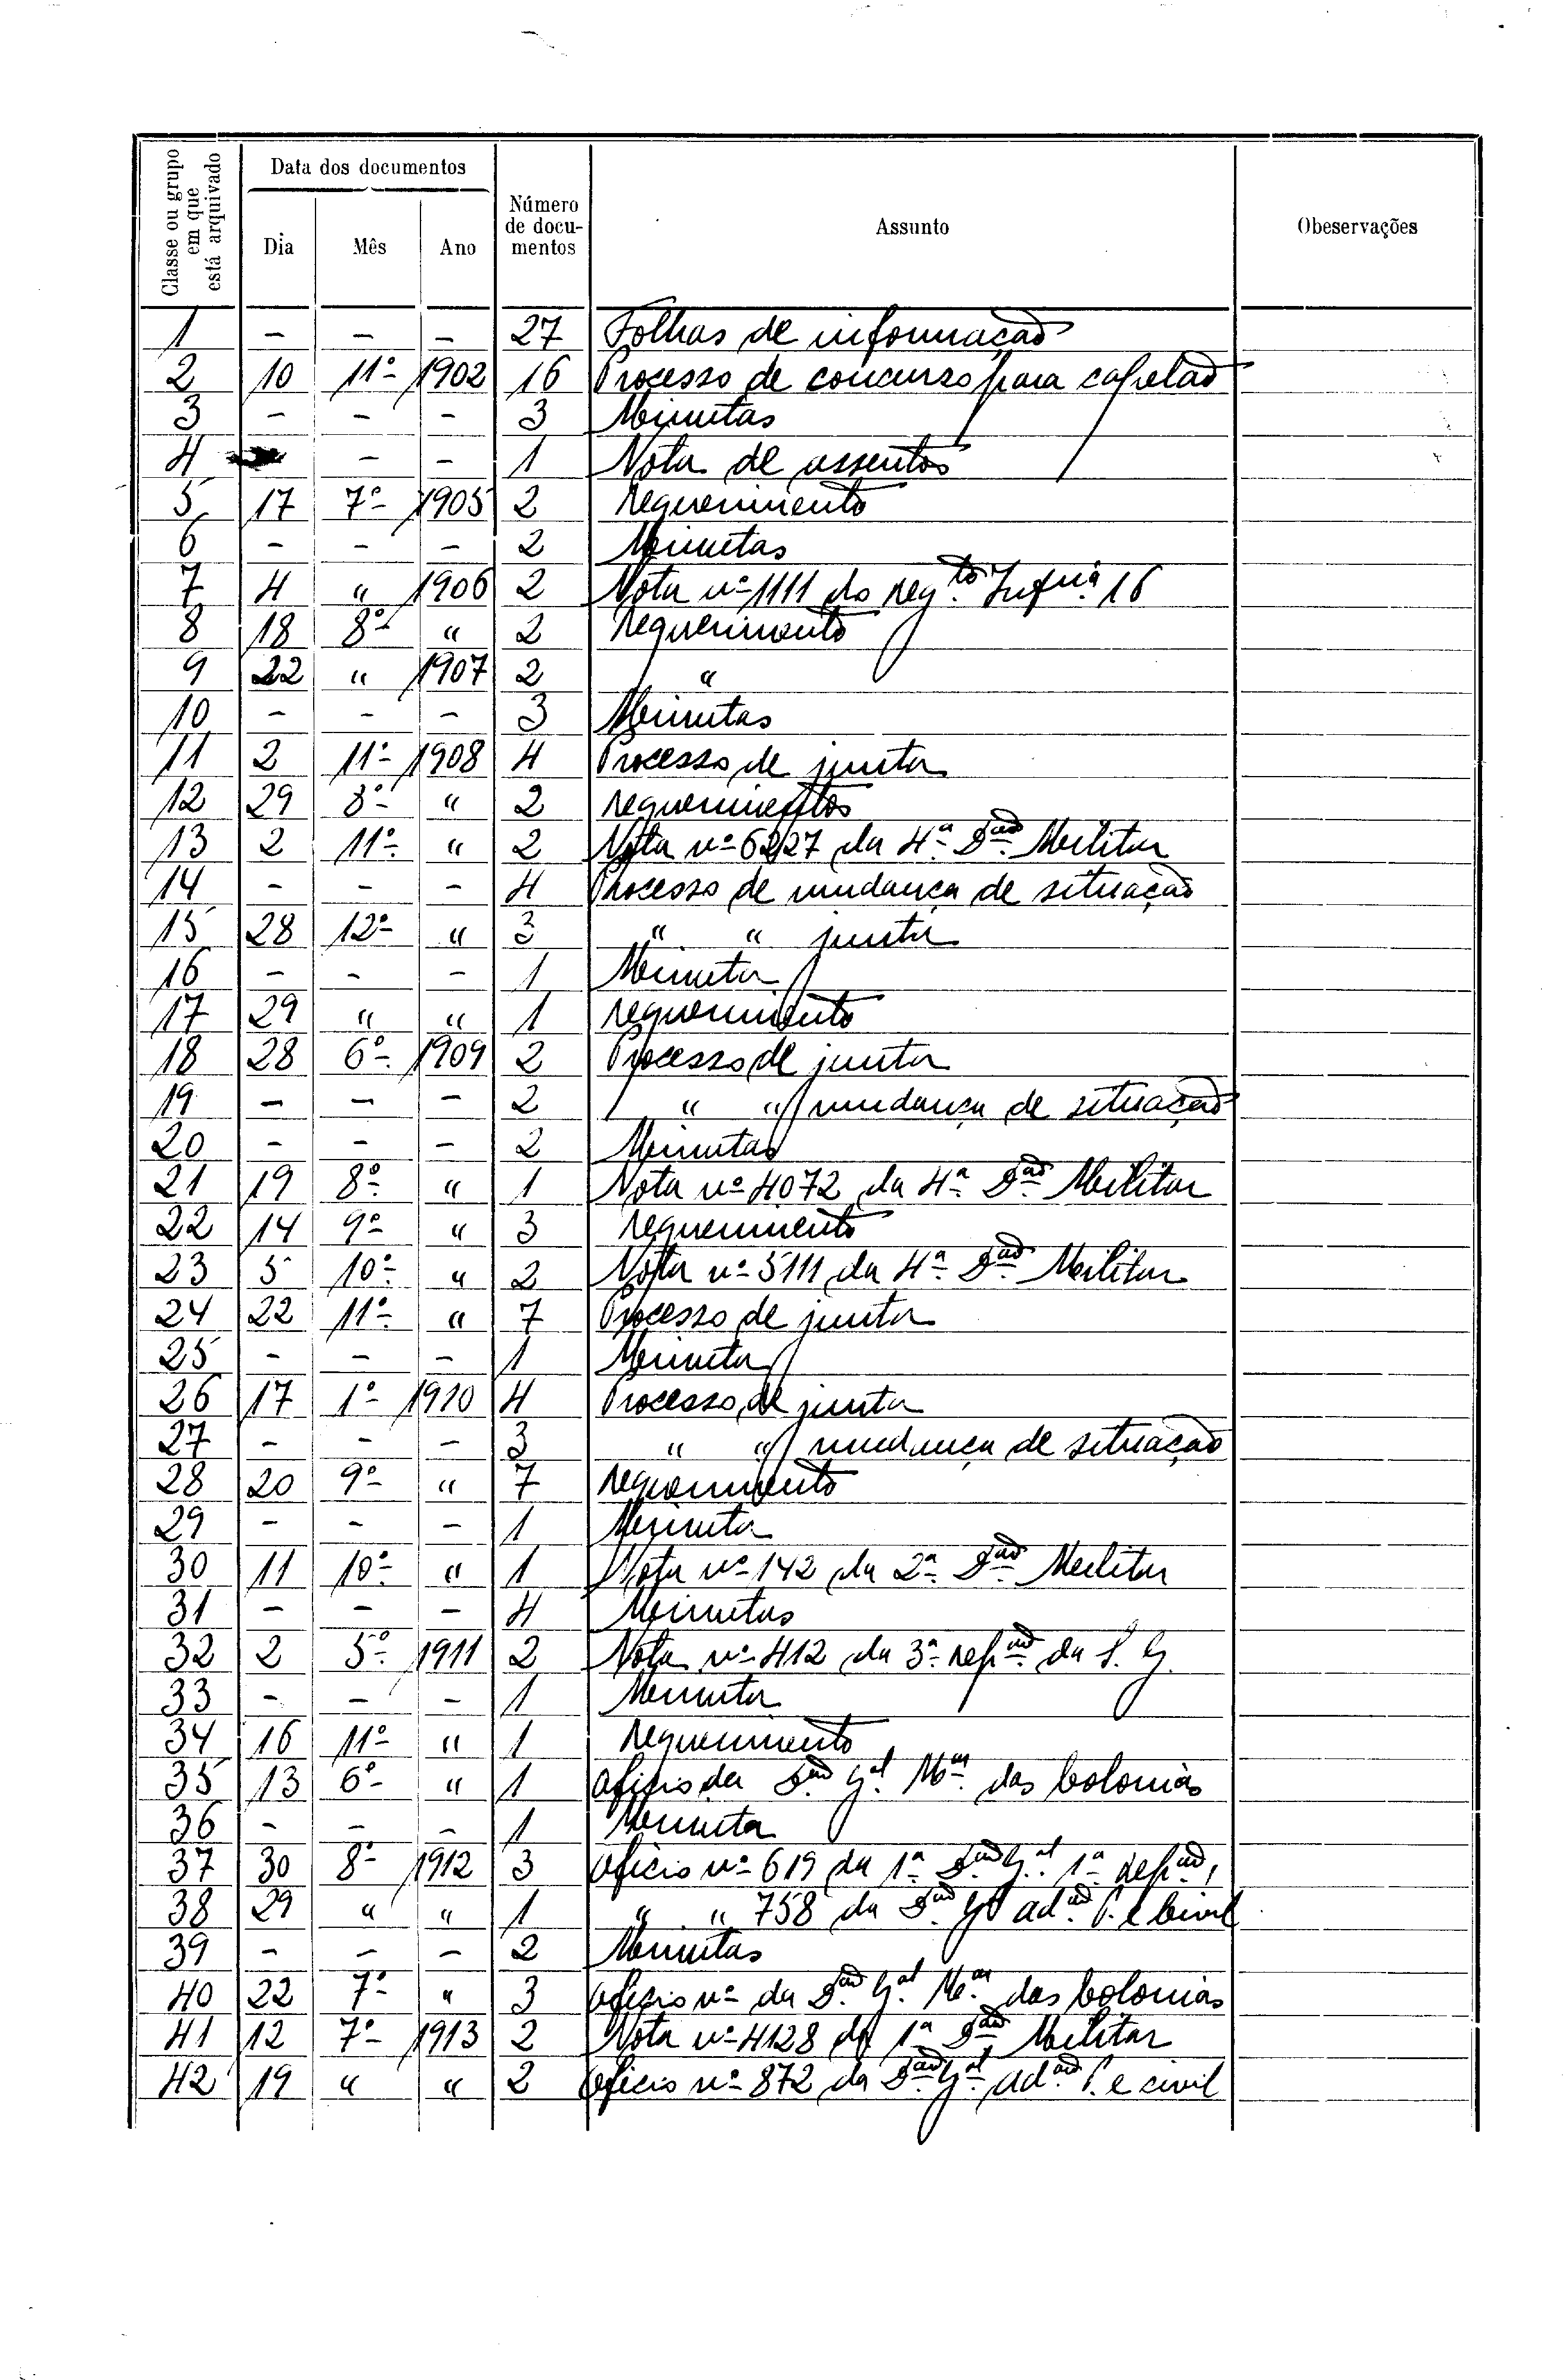 Classe ou grupo em que está arquivado
Data dos documentos
Dia Mês Ano
Número de docu-mentos
Assunto
Obeservações
1 - - - 27 Folhas de informação
2 10 11º 1902 16 Processo de concurso para capelão
3 - - - 3 Minutas
4 - - 1 Nota de assentos
5 17 7º 1905 2 requerimento
6 - - - 2 Minutas
7 4 " 1906 2 Nota nº 1111 do regto Infria 16
8 18 8º " 2 requerimento
9 22 " 1907 2 "
10 - - - 3 Minutas
11 2 11º 1908 4 Processo de junta
12 29 8º " 2 requerimentos
13 2 11º " 2 Nota nº 6227 da 4ª Dão Militar
14 - - - 4 Processo de mudança de situação
15 28 12º " 3 " " junta
16 - - - 1 Minuta
17 29 " " 1 requerimento
18 28 6º 1909 2 Processo de junta
19 - - - 2 " " mudança de situação
20 - - - 2 Minutas
21 19 8º " 1 Nota nº 4072 da 4ª Dão Militar
22 14 9º " 3 requerimento
23 5 10º " 2 Nota nº 5111 da 4ª Dão Militar
24 22 11º " 7 Processo de junta
25 - - - 1 Minuta
26 17 1º 1910 4 Processo de junta
27 - - - 3 " " mudança de situação
28 20 9º " 7 requerimento
29 - - - 1 Minuta
30 11 10º " 1 Nota nº 142 da 2ª Dão Militar
31 - - - 4 Minutas
32 2 5º 1911 2 Nota nº 412 da 3ª repão da S. G.
33 - - - 1 Minuta
34 16 11º " 1 requerimento
35 13 6º " 1 Oficio da Dão Gal Mar das Colonias
36 - - - 1 Minuta
37 30 8º 1912 3 Oficio nº 619 da 1ª Dão Gal 1ª repão,
38 29 " " 1 " " 758 da Dão Gal adão P. e Civil
39 - - - 2 Minutas
40 22 7º " 3 Oficio nº da Dão Gal Mar das Colonias
41 12 7º 1913 2 Nota nº 4128 da 1ª Dão Militar
42 19 " " 2 Oficio nº 872 da Dão Gal adão P. e civil